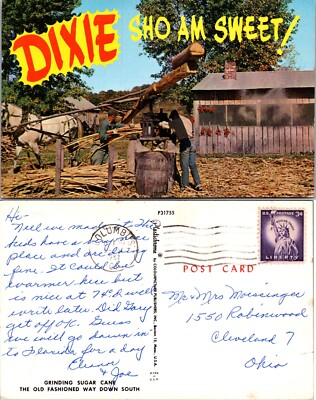 DIXIE
SHO AM SWEET!
Hi-
Well we made it. The
kids have a very nice
place and are doing
fine. It could be
warmer here but
is nice at 74. I will
write later. Did Gary
get off OK. Guess
we will go down in-
to Florida for a day
& Joe
P31755
COLUMBUS
U.S. POSTAGE 3¢
LIBERTY
POST CARD
Mr & Mrs Moissinger
1550 Robinwood
Cleveland 7
Ohio
GRINDING SUGAR CANE
THE OLD FASHIONED WAY DOWN SOUTH